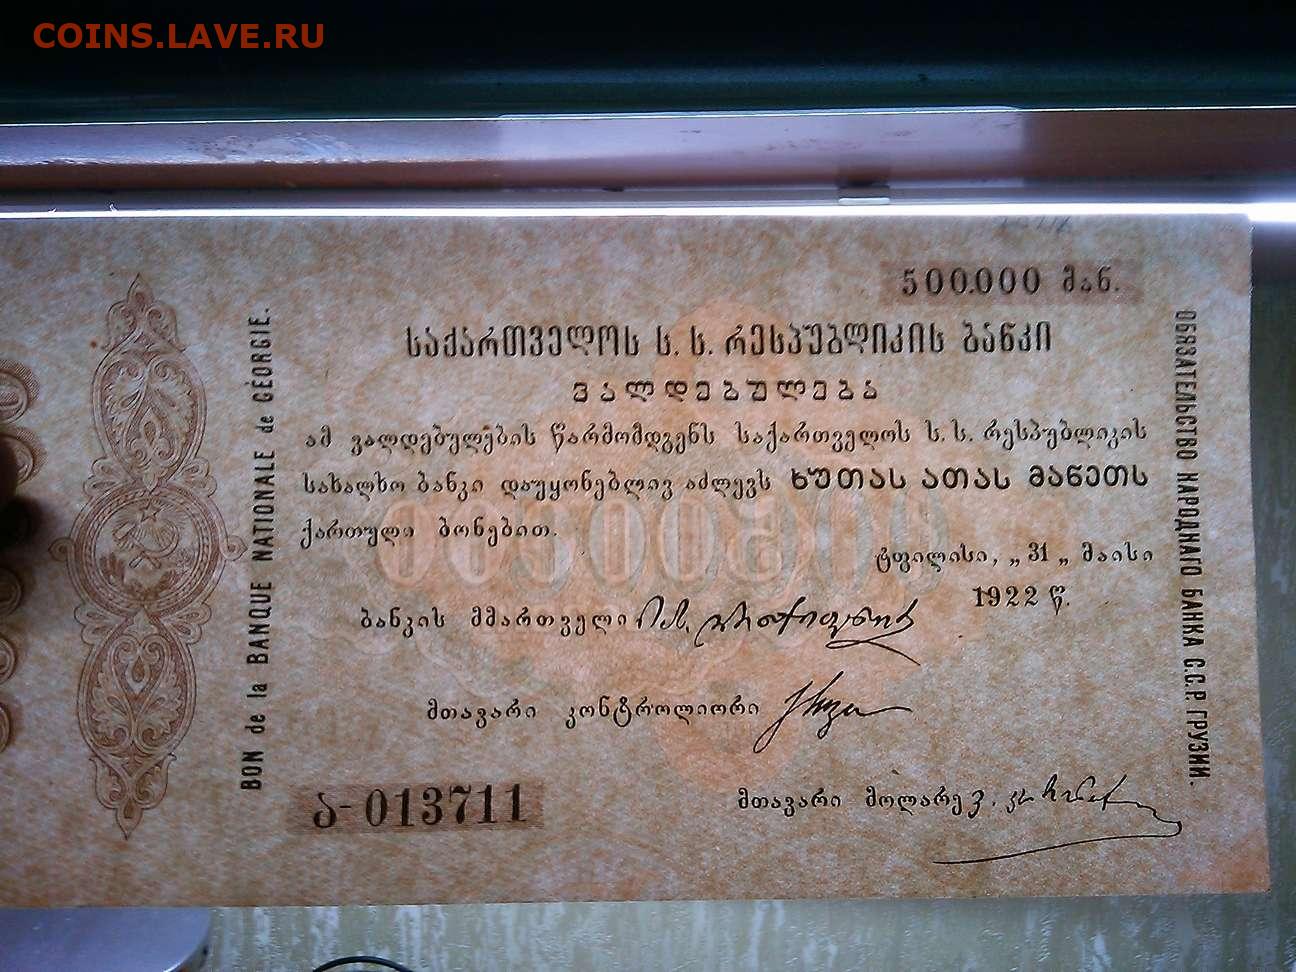 COINS.LAVE.RU
500.000 მან.
საქართველოს ს. ს. რესპუბლიკის ბანკი
ვალდებულება
ამ ვალდებულების წარმომდგენს საქართველოს ს. ს. რესპუბლიკის
სახალხო ბანკი დაუყონებლივ აძლევს ხუთას ათას მანეთს
ქართული ბონებით.
ტფილისი, „ 31 „ მაისი
1922 წ.
ბანკის მმართველი
მთავარი კონტროლიორი
მთავარი მოლარე
ა-013711
BON de la BANQUE NATIONALE de GÉORGIE.
ОБЯЗАТЕЛЬСТВО НАРОДНАГО БАНКА С.С.Р. ГРУЗИИ.
500000